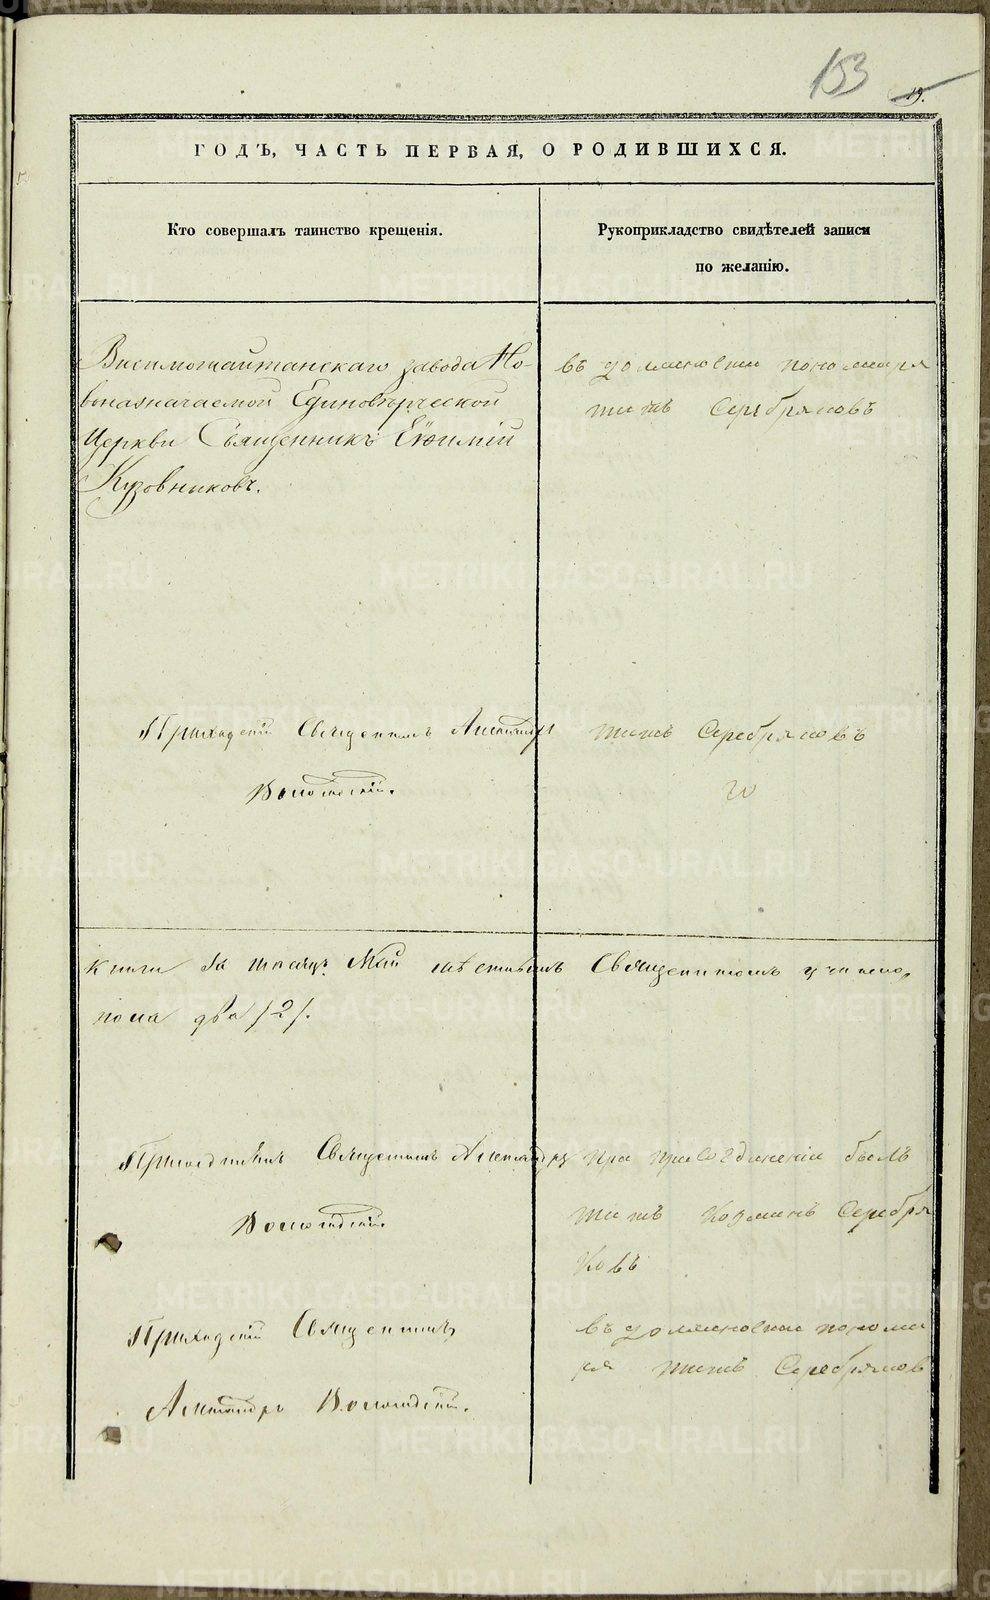 153
19.
ГОДЪ, ЧАСТЬ ПЕРВАЯ, О РОДИВШИХСЯ.
Кто совершалъ таинство крещенія.
Рукоприкладство свидѣтелей записи
по желанію.
Висимошайтанскаго завода Но-
воназначаемой Единовѣрческой
Церкви Священникъ Евѳимій
Кузовниковъ.
въ должности пономаря
титъ Серебряковъ
Приходскій Священникъ Александръ
Вологодскій.
титъ Серебряковъ
книги за мѣсяцъ Май мѣстнымъ Священникомъ
пола два /2/.
Священникъ Александръ
Вологодскій.
при присоединеніи былъ
титъ Козминъ Серебря
ковъ
Приходскій Священникъ
Александръ Вологодскій.
въ должности понома
ря титъ Серебряков
METRIKI.GASO-URAL.RU